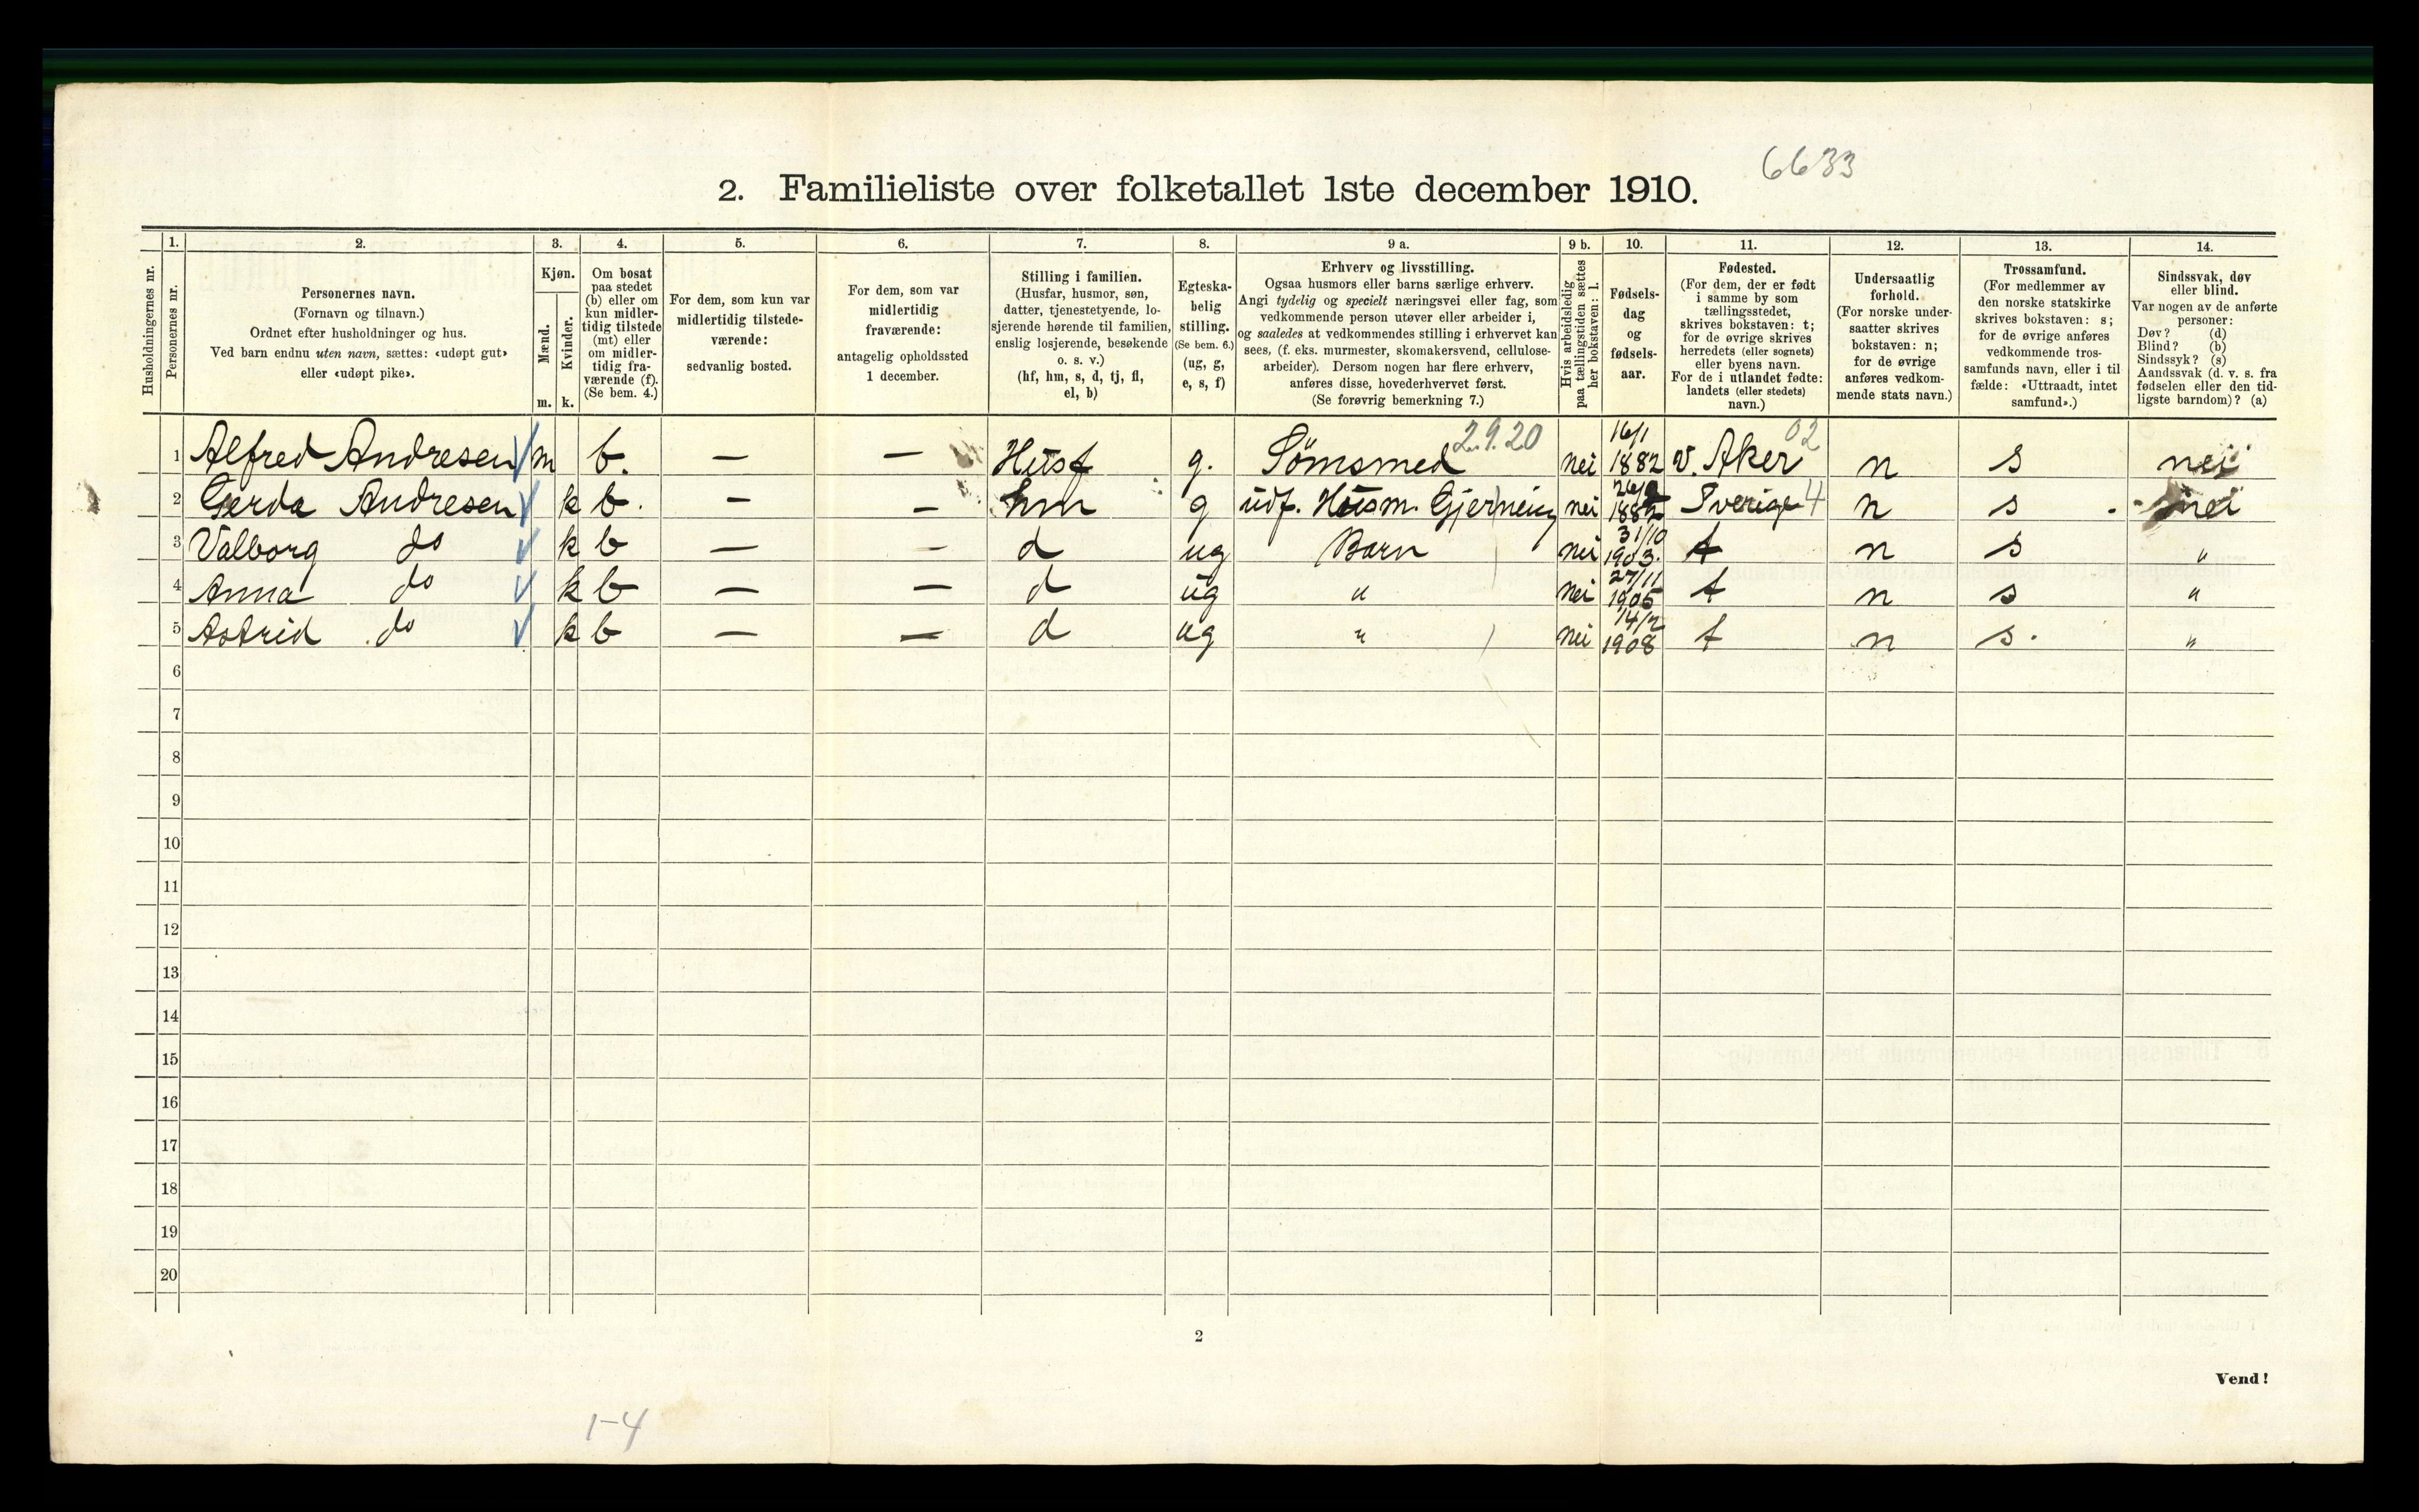 6633
2. Familieliste over folketallet 1ste december 1910.
Husholdningernes nr.
1. Personernes nr.
2. Personernes navn. (Fornavn og tilnavn.) Ordnet efter husholdninger og hus. Ved barn endnu uten navn, sættes: «udøpt gut» eller «udøpt pike».
3. Kjøn. Mænd. m. Kvinder. k.
4. Om bosat paa stedet (b) eller om kun midler-tidig tilstede (mt) eller om midler-tidig fra-værende (f). (Se bem. 4.)
5. For dem, som kun var midlertidig tilstede-værende: sedvanlig bosted.
6. For dem, som var midlertidig fraværende: antagelig opholdssted 1 december.
7. Stilling i familien. (Husfar, husmor, søn, datter, tjenestetyende, lo-sjerende hørende til familien, enslig losjerende, besøkende o. s. v.) (hf, hm, s, d, tj, fl, el, b)
8. Egteska-belig stilling. (Se bem. 6.) (ug, g, e, s, f)
9 a. Erhverv og livsstilling. Ogsaa husmors eller barns særlige erhverv. Angi tydelig og specielt næringsvei eller fag, som vedkommende person utøver eller arbeider i, og saaledes at vedkommendes stilling i erhvervet kan sees, (f. eks. murmester, skomakersvend, cellulose-arbeider). Dersom nogen har flere erhverv, anføres disse, hovederhvervet først. (Se forøvrig bemerkning 7.)
9 b. Hvis arbeidsledig paa tællingstiden sættes her bokstaven: l.
10. Fødsels-dag og fødsels-aar.
11. Fødested. (For dem, der er født i samme by som tællingsstedet, skrives bokstaven: t; for de øvrige skrives herredets (eller sognets) eller byens navn. For de i utlandet fødte: landets (eller stedets) navn.)
12. Undersaatlig forhold. (For norske under-saatter skrives bokstaven: n; for de øvrige anføres vedkom-mende stats navn.)
13. Trossamfund. (For medlemmer av den norske statskirke skrives bokstaven: s; for de øvrige anføres vedkommende tros-samfunds navn, eller i til fælde: «Uttraadt, intet samfund».)
14. Sindssvak, døv eller blind. Var nogen av de anførte personer: Døv? (d) Blind? (b) Sindssyk? (s) Aandssvak (d. v. s. fra fødselen eller den tid-ligste barndom)? (a)
1 Alfred Andresen m b. — — Husf g. Sömsmed 2.9.20 nei 16/1 1882 v. Aker 02 n s nei
2 Gerda Andresen k b. — — hm g udf. Husm. Gjerning nei 1882 Sverige 4 n s nei
3 Valborg do k b — — d ug Barn nei 31/10 1903. t n s "
4 Anna do k b — — d ug " nei 27/11 1905 t n s "
5 Astrid do k b — — d ug " nei 14/2 1908 t n s. "
6
7
8
9
10
11
12
13
14
15
16
17
18
19
20
2
Vend!
1-4